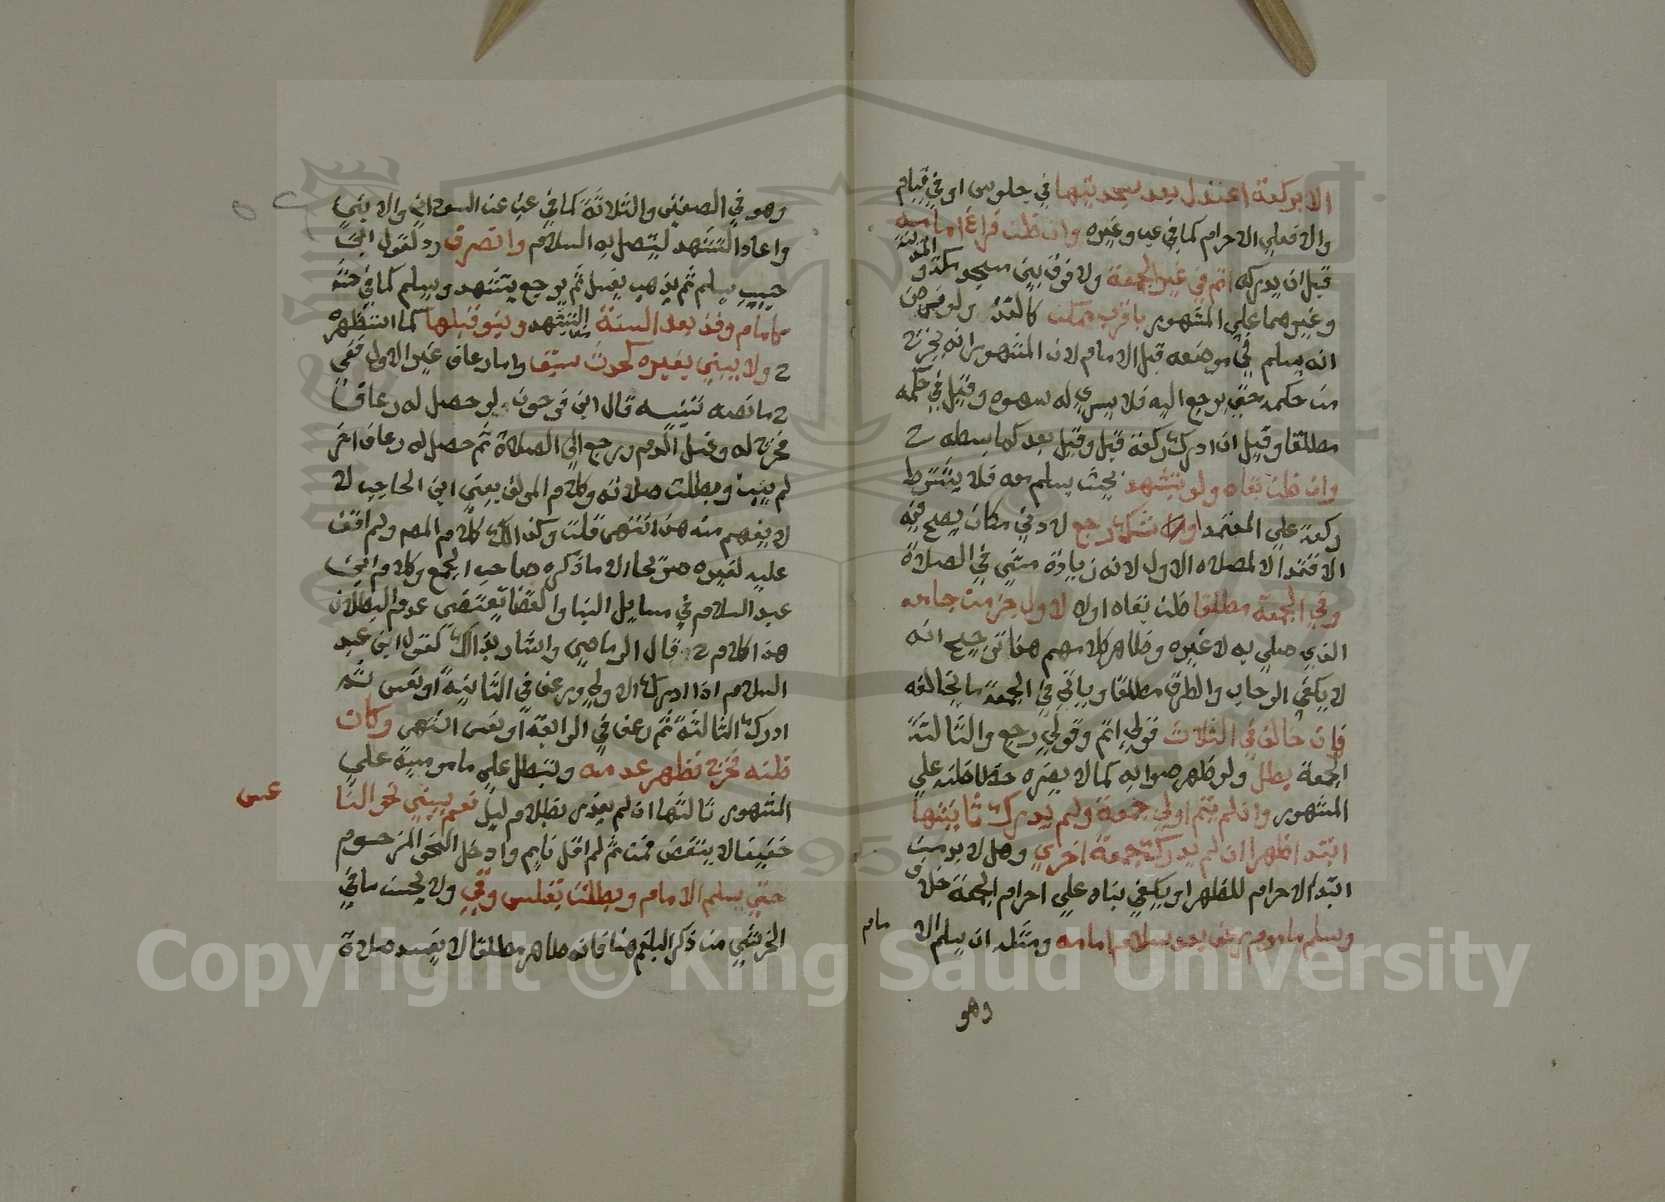 الا بركعة اعتدل بعد سجدتيها في جلوس او في قيام
والا فعلي الاحرام كما في عب وغيره وان ظن فراغ امامه
قبل ان يدركه اتم في غير الجمعة ولا فرق بين مسجد مكة والمدينة
وغيرهما علي المشهور باقرب ممكن كالقذ ولو فرض
انه يسلم في موضعه قبل الامام لان المشهور انه يخرج
من حكمه حتي يرجع اليه فلا يسري له سهوه وقيل في حكمه
مطلقا وقيل ان ادرك ركعة قبل وقيل بعد كما بسطه ح
وان ظن بقاه ولو بتشهد بحيث يسلم معه فلا يشترط
ركعة علي المعتمد او شك رجع لادني مكان يصح فيه
الاقتدا لا لمصلاه الاول لانه زيادة مشي في الصلاة
وفي الجمعة مطلقا ظن بقاه اولا لاول جزء من جامعه
الذي صلي به لا غيره وظاهر كلامهم هنا ترجيح انه
لا يكفي الرحاب والطرق مطلقا وياتي في الجمعة ما يخالفه
فان خالف في الثلاث قولي اتم وقولي رجع والثالثة
الجمعة بطل ولو ظهر صوابه كما لا يضره خطا ظنه علي
المشهور وان لم يتم اولي جمعة ولم يدرك ثانيتها
ابتدا ظهرا ان لم يدرك جمعة اخري وهل لا بد من
ابتدا الاحرام للظهر او يكفي بناه علي احرام الجمعة خلاف
وسلم ماموم رعف بعد سلام امامه ومثله ان يسلم الا
مام
وهو
وهو في الصفين والثلاثة كما في عب عن السوداني والا بني
واعاد التشهد ليتصل به السلام وانصرف رد لقول ابن
حبيب يسلم ثم يذهب يغسل ثم يرجع يتشهد ويسلم كما في حش
كامام وفذ بعد السنة التشهد وبنو قبلها كما استظهره
ح ولا يبني بغيره كحدث سبق واما رعاف غير الاول ففي
ح ما نصه تنبيه قال ابن فرحون ولو حصل له رعاف
فخرج له وغسل الدم ورجع الي الصلاة ثم حصل له رعاف اخر
لم يبن وبطلت صلاته وكلام المولف يعني ابن الحاجب لا
لا يفهم منه هذا انتهي قلت وكذلك كلام المص ولم اقف
عليه لغيره صريحا الا ما ذكره صاحب الجمع وكلام ابن
عبد السلام في مسايل البنا والقضا يقتضي عدم البطلان
هذا كلام ح قال الرماصي واشار بذلك لقول ابن عبد
السلام اذا ادرك الاولي ورعف في الثانية او نعس ثم
ادرك الثالثة ثم رعف في الرابعة او نعس انتهي وكان
ظنه فخرج فظهر عدمه وتبطل علي مامومية علي
المشهور ثالثها ان لم يعذر بظلام ليل نعم يبني نحو النا
عس
خفيفا لا ينقض قمت ثم لم اقل نايم وادخل النحو المزحوم
حتي يسلم الامام وبطلت بغلس وقي ولا يحسن ما في
الخرشي من ذكر البلغم هنا فانه طاهر مطلقا لا يفسد صلاة